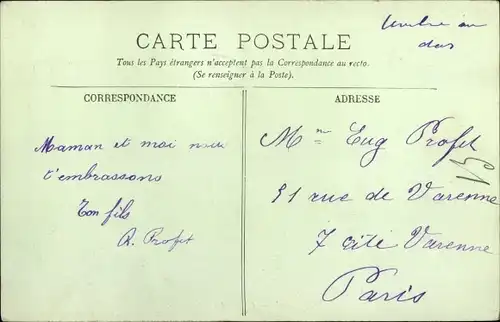 Timbre au
dos
CARTE POSTALE
Tous les Pays étrangers n'acceptent pas la Correspondance au recto.
(Se renseigner à la Poste).
CORRESPONDANCE
Maman et moi nous
t'embrassons
Ton fils
R. Profit
ADRESSE
Mn Eug Profit
51 rue de Varenne
7 cité Varenne
Paris